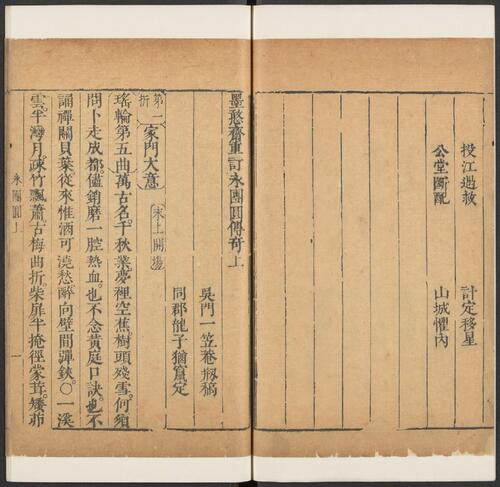 投江遇救　計定移星
公堂斷配　山城懼內
墨憨齋重訂永團圓傳奇上
吳門一笠菴剏稿
同郡龍子猶竄定
第一折　家門大意　末上開場
瑤輪第五曲萬古名千秋業夢裡空蕉樹頭殘雪何須
問卜走成都儘銷磨一腔熱血也不念黃庭口訣也不
誦禪關貝葉從來惟酒可澆愁醉向壁間彈鋏○一溪
雲半灣月疎竹飄蕭古梅曲折柴屏半掩徑蒙茸矮茆
永團圓上　一